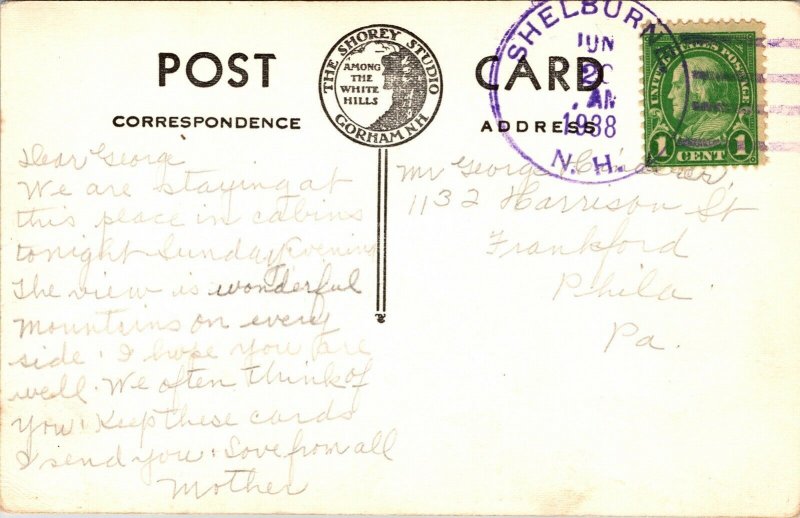 POST CARD
THE SHOREY STUDIO
AMONG
THE
WHITE
HILLS
GORHAM N.H.
CORRESPONDENCE
ADDRESS
SHELBURN
JUN
20
AM
1938
N. H.
UNITED STATES POSTAGE
1 CENT 1
Dear George
We are staying at
this place in cabins
tonight Sunday Evening
The view is wonderful
mountains on every
side. I hope you are
well. We often think of
you. Keep these cards
I send you. Love from all
Mother
Mr George
1132 Harrison St
Frankford
Phila
Pa.